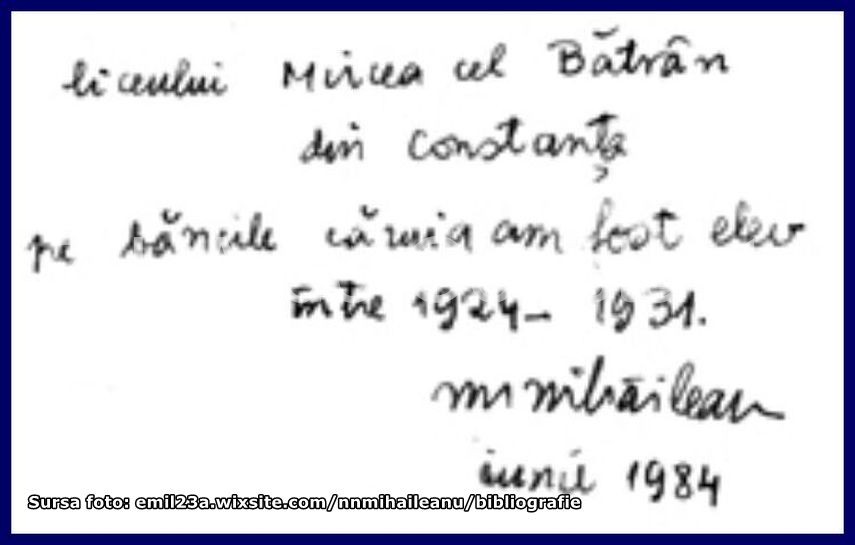 liceului Mircea cel Bătrân
din Constanța
pe băncile căruia am fost elev
între 1924 – 1931.
nn mihăileanu
iunie 1984
Sursa foto: emil23a.wixsite.com/nnmihaileanu/bibliografie